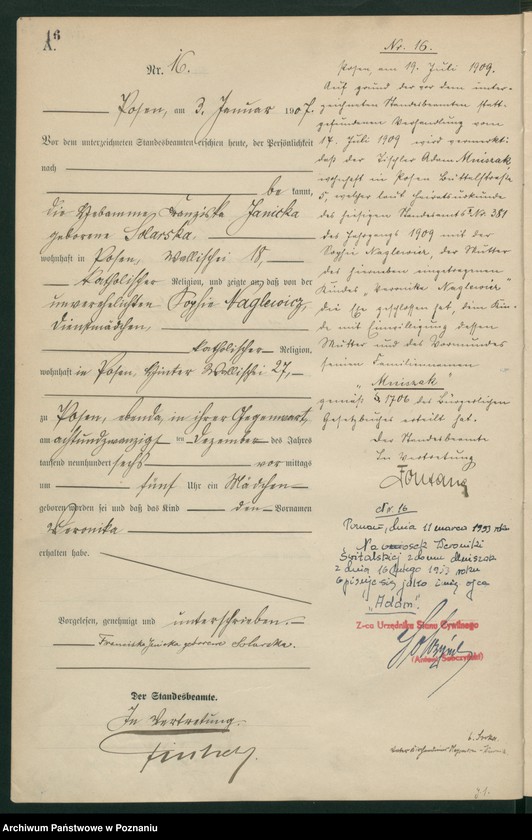 16
A.
Nr. 16.
Posen, am 3. Januar 1907.
Vor dem unterzeichneten Standesbeamten erschien heute, der Persönlichkeit
nach
be kannt,
die Hebamme Franziska Janicka
geborene Solarska
wohnhaft in Posen, Wallischei 18,
katholischer Religion, und zeigte an, daß von der
unverehelichten Sophie Naglewicz,
Dienstmädchen,
katholischer Religion,
wohnhaft in Posen, Hinter Wallischei 27,
zu Posen, ebenda, in ihrer Gegenwart,
am achtundzwanzigsten Dezember des Jahres
tausend neunhundert sechs vor mittags
um fünf Uhr ein Mädchen
geboren worden sei und daß das Kind den Vornamen
Veronika
erhalten habe.
Vorgelesen, genehmigt und unterschrieben.
Franciska Janicka geborene Solarska.
Der Standesbeamte.
In Vertretung.
Nr. 16.
Posen, am 19. Juli 1909.
Auf Grund der vor dem unter-
zeichneten Standesbeamten statt-
gefundenen Verhandlung vom
17. Juli 1909 wird vermerkt:
daß der Tischler Adam Mniszak,
wohnhaft in Posen Büttelstraße
5, welcher laut Heiratsurkunde
des hiesigen Standesamts Nr. 381
des Jahrgangs 1909 mit der
Sophie Naglewicz, der Mutter
des hierneben eingetragenen
Kindes "Veronika Naglewicz"
die Ehe geschlossen hat, dem Kin-
de mit Einwilligung dessen
Mutter und des Vormundes
seinen Familiennamen
"Mniszak"
gemäß § 1706 des Bürgerlichen
Gesetzbuches erteilt hat.
Der Standesbeamte
In Vertretung
Fontane
Nr 16
Poznań, dnia 11 marca 1933 roku
Na wniosek Weroniki
z domu Mniszak
z dnia 16 lutego 1933 roku
wpisuje się jako imię ojca
"Adam".
Z-ca Urzędnika Stanu Cywilnego
(Antoni Sobczyński)
Archiwum Państwowe w Poznaniu